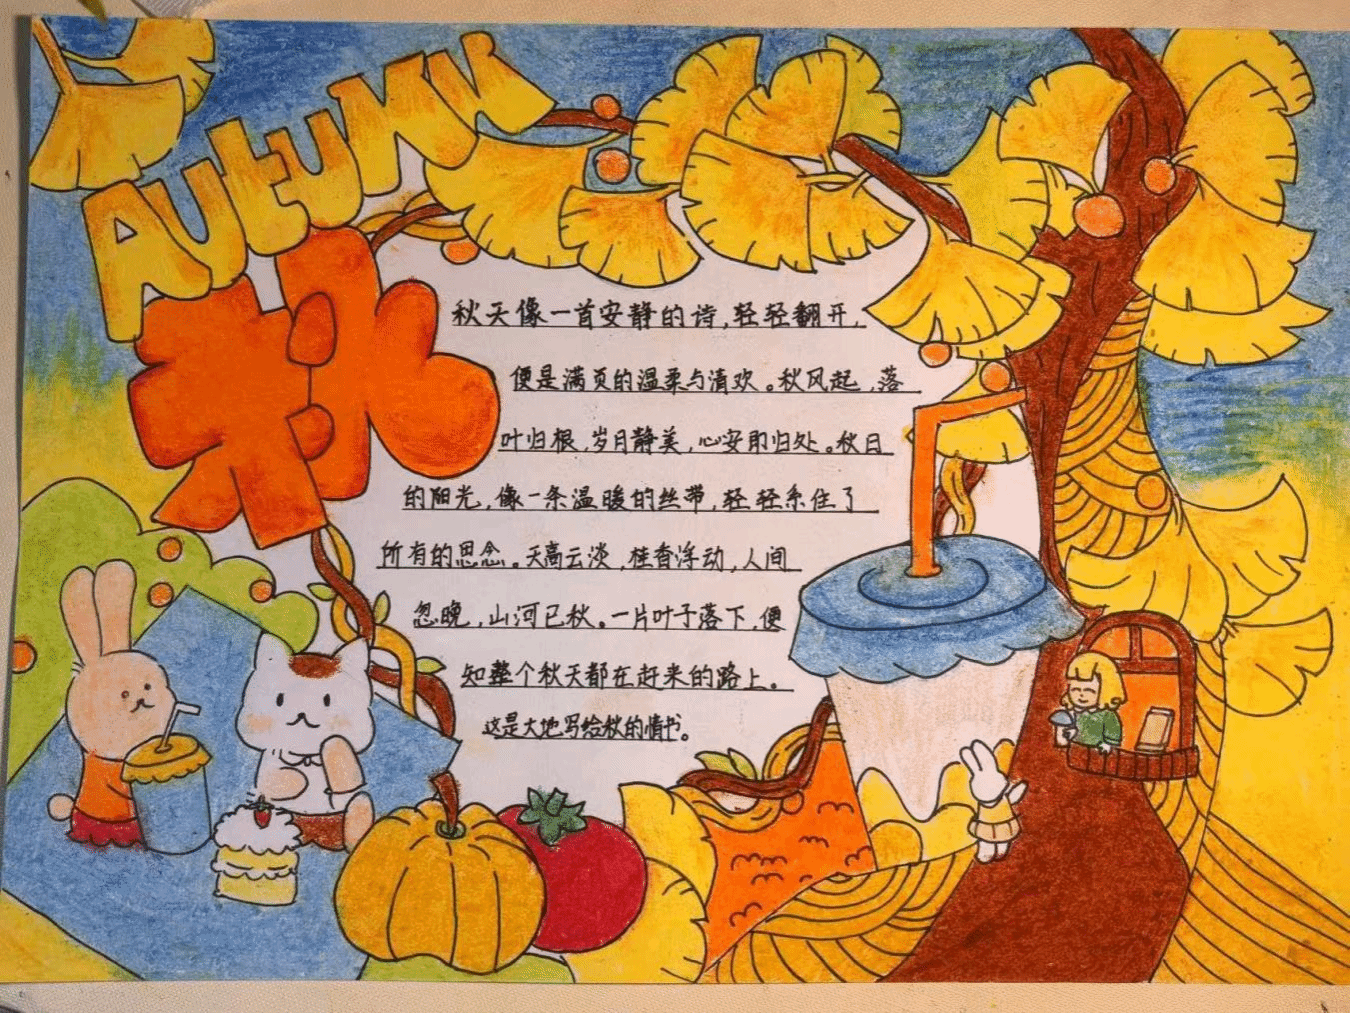 Autumn
秋
秋天像一首安静的诗,轻轻翻开,
便是满页的温柔与清欢。秋风起,落
叶归根,岁月静美,心安即归处。秋日
的阳光,像一条温暖的丝带,轻轻系住了
所有的思念。天高云淡,桂香浮动,人间
忽晚,山河已秋。一片叶子落下,便
知整个秋天都在赶来的路上。
这是大地写给秋的情书。